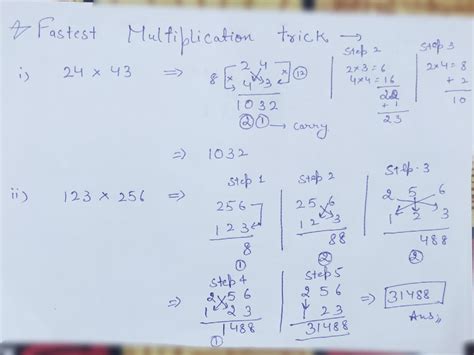 Fastest Multiplication trick →
i) 24 × 43 ⇒
8 2 4 12
4 3
1032
② ① → carry
Step 2
2×3=6
4×4=16
22
+ 1
23
Step 3
2×4=8
+ 2
10
⇒ 1032
ii) 123 × 256 ⇒
Step 1
256
123
8
①
Step 2
256
123
88
②
Step·3
2 5 6
1 2 3
488
②
⇒
Step 4
2 5 6
1 2 3
1488
①
Step 5
2 5 6
1 2 3
31488
⇒ 31488
Ans,,